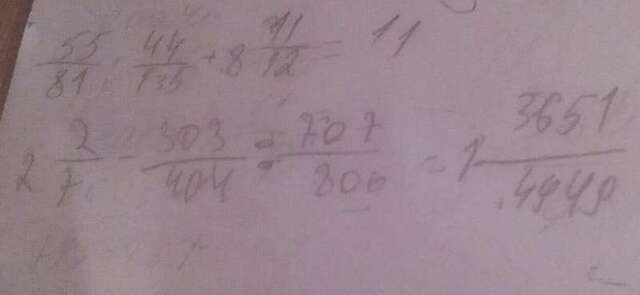 55/81 : 44/135 + 8 11/12 = 11
2 2/7 - 303/404 : 707/808 = 1 3651/4949